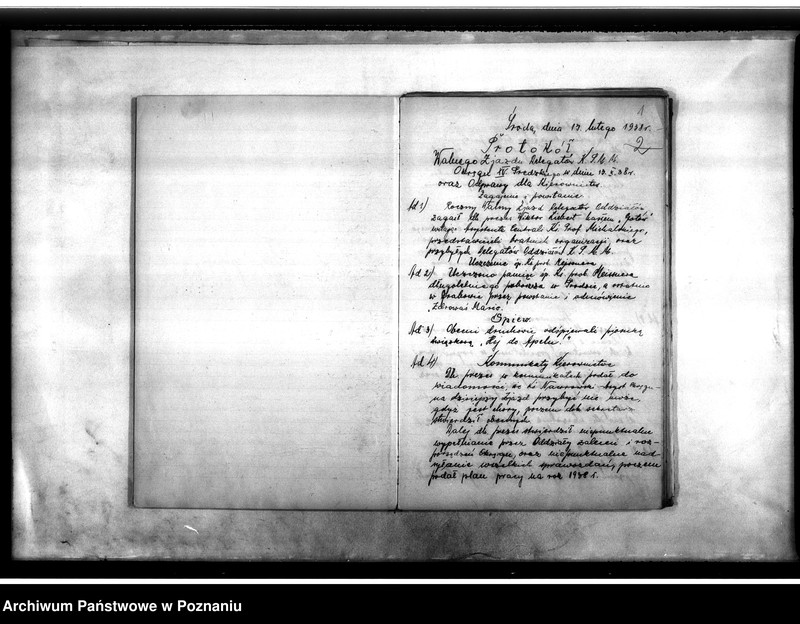 1
Środa, dnia 17 lutego 1938 r.
2
Protokół
Walnego Zjazdu Delegatów K.S.M.M.
Okręgu IV Średzkiego w dniu 13.2.38 r.
oraz Odprawy dla Kierownictw
Zagajenie i powitanie
Ad 1) Roczny Walny Zjazd Delegatów Oddziałów
zagaił dh prezes hasłem "Gotów"
witając Centrali Ks. Prof. Michalskiego,
przedstawicieli bratnich organizacji oraz
przybyłych delegatów Oddziałów K.S.M.M.
Uczczenie śp. Ks. prob. Meissnera
Ad 2) Uczczono pamięć śp. Ks. prob. Meissnera
długoletniego w Środzie, a ostatnio
w przez powstanie i odmówienie
"Zdrowaś Mario."
Śpiew.
Ad 3) Obecni druhowie odśpiewali piosnkę
związkową "Hej do Apelu!"
Ad 4) Komunikaty Kierownictwa
Dh prezes w komunikatach podał do
wiadomości, że Ks. Nawrowski
na dzisiejszy zjazd przybyć nie może,
gdyż jest chory, poczem dh sekretarz
stwierdził obecnych.
Dalej dh prezes stwierdził niepunktualne
wypełnianie przez Oddziały zaleceń i roz-
porządzeń Okręgu, oraz niepunktualne nad-
syłanie wszelkich sprawozdań, poczem
podał plan pracy na rok 1938 r.
Archiwum Państwowe w Poznaniu